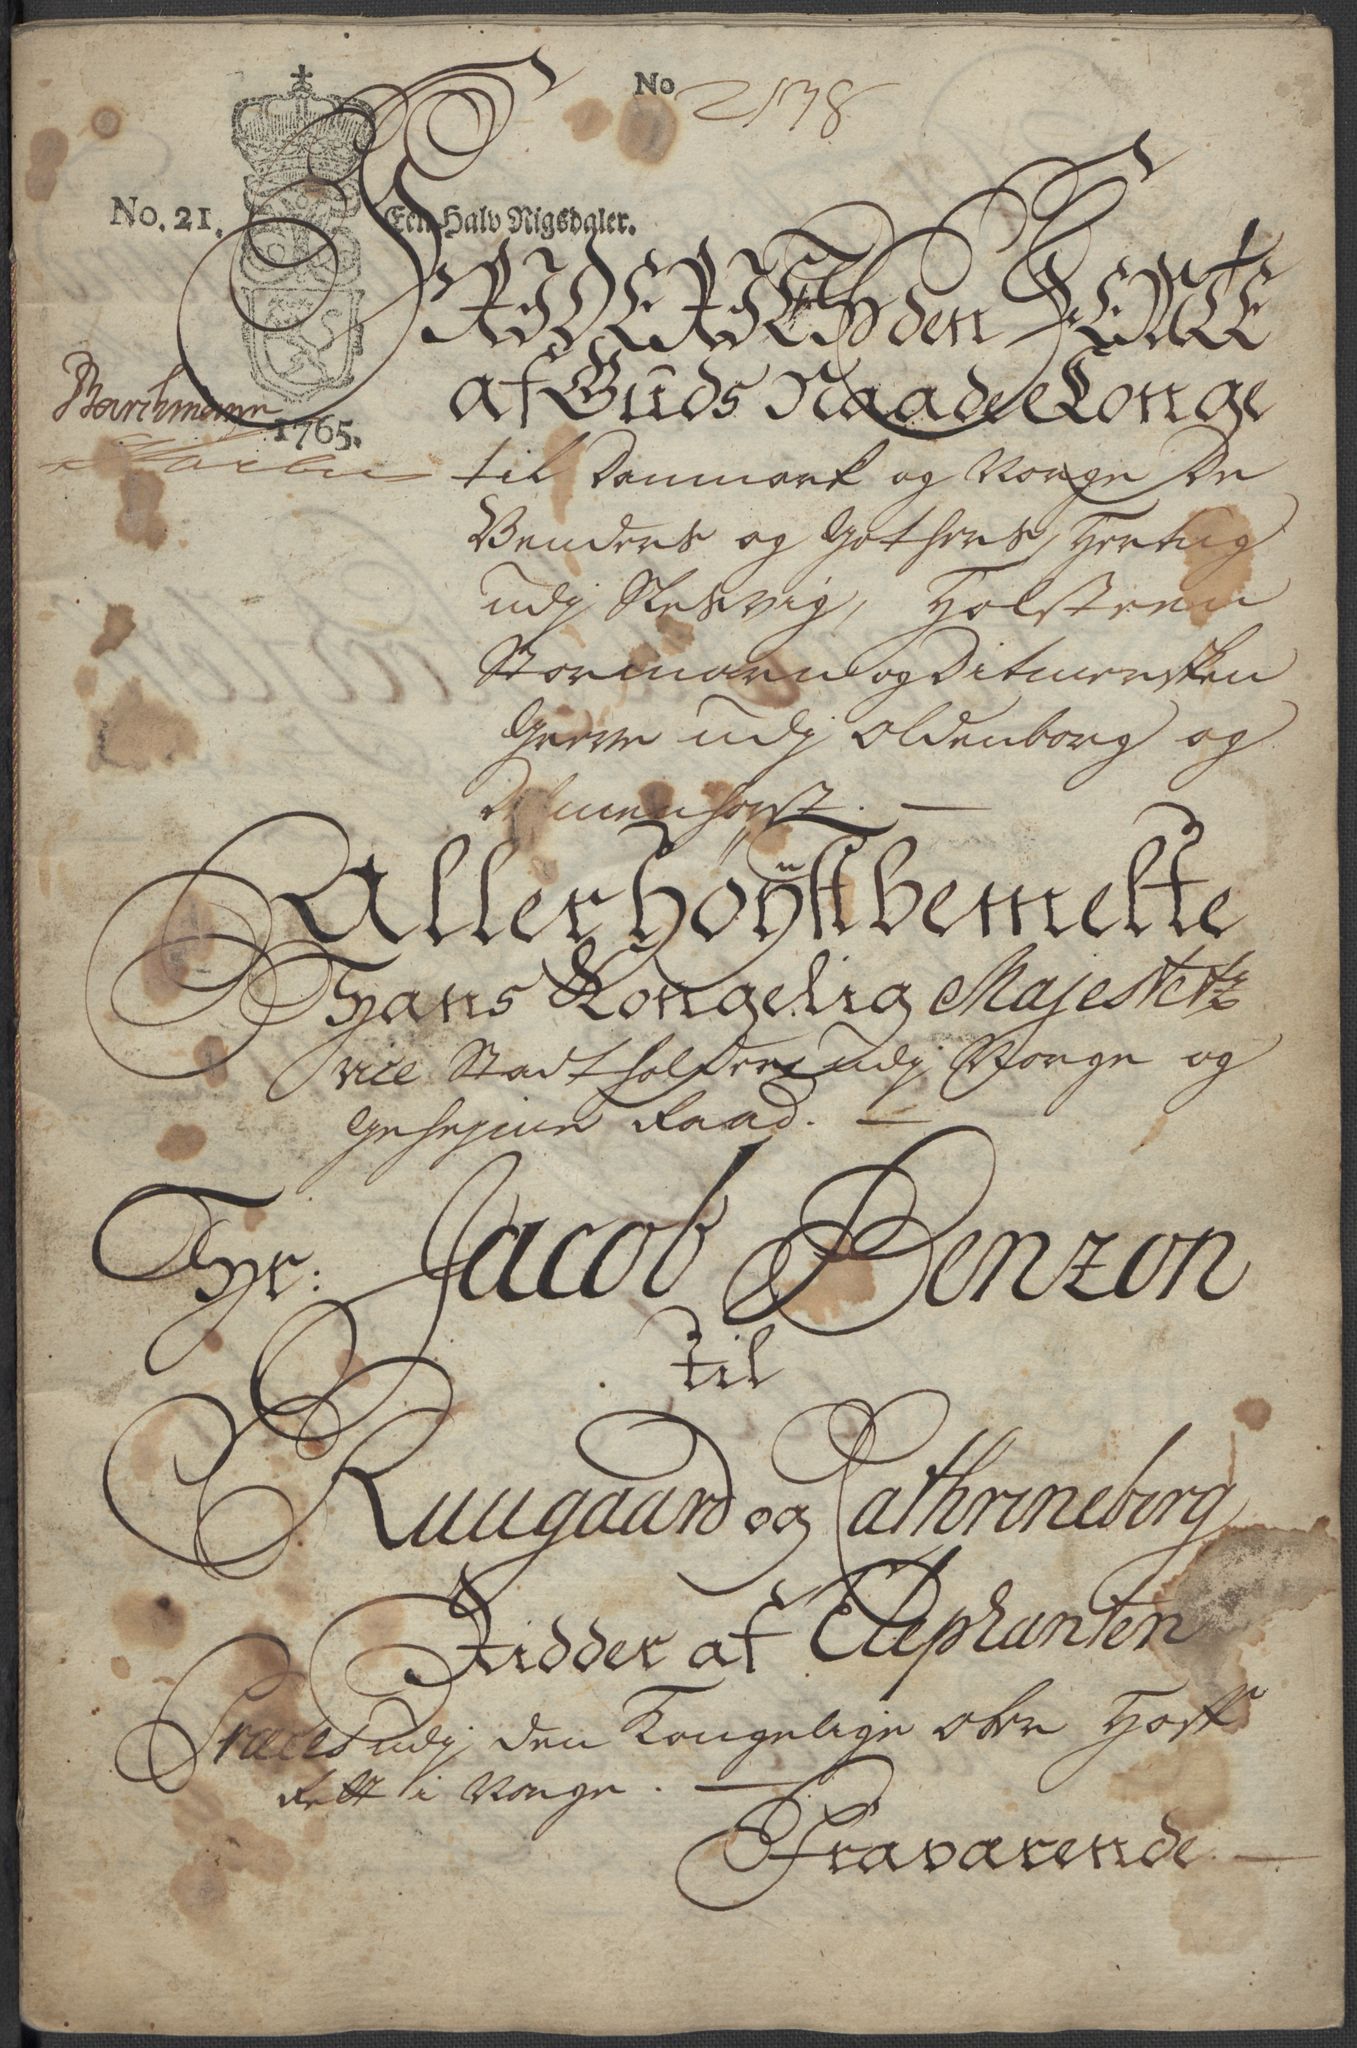 No 2178
No. 21. Een Halv Rigsdaler.
FRIDERICH den FEMTE
af Guds Naade Conge
1765.
til Danmark og Norge De
Venders og Gothers, Hertug
udj Slesvig, Holsteen
Stormarn og Ditmersken
Greve udj Oldenborg og
Delmenhorst. —
Allerhöÿstbemelte
Hans Kongelig Majestets
vice Stadtholder udj Norge og
Gehejme Raad. —
Hr: Jacob Benzon
til
Ruugaard og Cathrineborg
Ridder af Elephanten
Præces udj den Kongelige Ober Hoff
Rett i Norge. —
Fraværende —